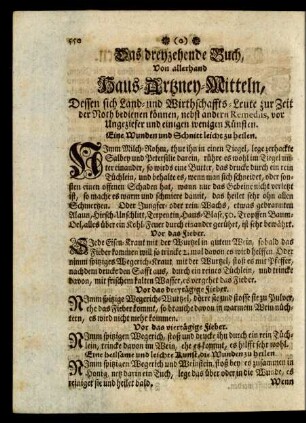 550 (0)
Das dreyzehende Buch,
Von allerhand
Haus-Artzney-Mitteln,
Dessen sich Land- und Wirthschaffts-Leute zur Zeit
der Noth bedienen können, nebst andern Remediis, vor
Ungeziefer und einigen wenigen Künsten.
Eine Wunden und Schnitt leicht zu heilen.
NImm Milch-Rohm, thue ihn in einen Tiegel, lege zerhackte
Salbey und Petersilie darein, rühre es wohl im Tiegel un-
ter einander, so wird es eine Butter, das drucke durch ein rein
Tüchlein, und behalte es, wenn man sich schneidet, oder son-
sten einen offenen Schaden hat, wann nur das Gebeine nicht verletzt
ist, so mache es warm und schmiere damit, das heilet sehr ohn allen
Schmertzen. Oder Jungfer- oder rein Wachs, etwas gebrannten
Alaun, Hirsch-Unschlitt, Terpentin, 30. Tropffen Baum-
Oel, alles über ein Kohl-Feuer durch einander gerühret, ist sehr bewährt.
Vor das Fieber.
SIede Eisen-Kraut mit der Wurtzel in gutem Wein, so bald das
Fieber kommen will so trincke 2. mal davon es wird helffen. Oder
nimm spitziges Wegerich-Kraut mit der Wurtzel, stoß es mit Pfeffer,
nachdem drucke den Safft aus, durch ein reines Tüchlein, und trincke
davon, mit frischem kalten Wasser, es vergehet das Fieber.
Vor das dreytägige Fieber.
NImm spitzige Wegerich-Wurtzel, dörre sie und stosse sie zu Pulver,
ehe das Fieber kommt, so brauche davon in warmem Wein nüch-
tern, es wird nicht mehr kommen.
Vor das viertägige Fieber.
NImm spitzigen Wegerich, stoß und drucke ihn durch ein rein Tüch-
lein, trincke davon im Wein, ehe es kommt, es hilfft sehr wohl.
Eine heilsame und leichte Kunst, die Wunden zu heilen
NImm spitzigen Wegerich und Weinstein, stoß bey es zusammen in
Honig, netz darin ein Tuch, lege das über oder in die Wunde, es
reiniget sie und heilet bald,
Wenn